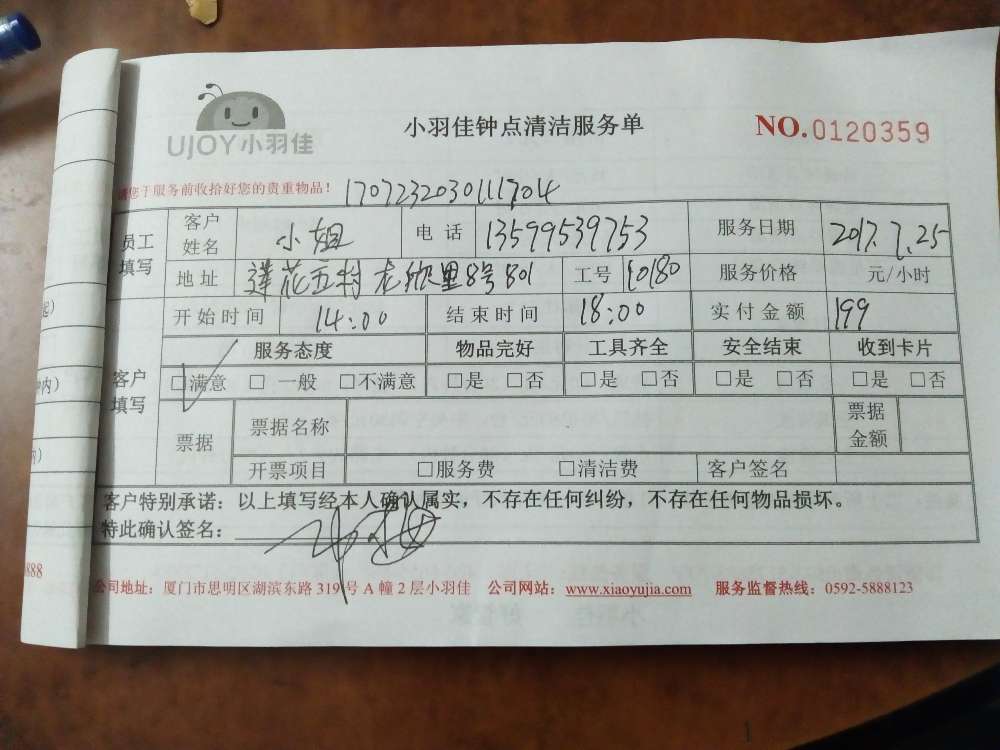 UJOY小羽佳
小羽佳钟点清洁服务单
NO.0120359
您于服务前收拾好您的贵重物品！
1707232030111704
员工填写 客户姓名 小姐 电话 13599539753 服务日期 2017.7.25
地址 莲花五村龙欣里8号801 工号 服务价格 元/小时
客户填写 开始时间 14:00 结束时间 18:00 实付金额 199
服务态度 物品完好 工具齐全 安全结束 收到卡片
☑满意 □一般 □不满意 □是 □否 □是 □否 □是 □否 □是 □否
票据 票据名称 票据金额
开票项目 □服务费 □清洁费 客户签名
客户特别承诺：以上填写经本人确认属实，不存在任何纠纷，不存在任何物品损坏。
特此确认签名：
公司地址：厦门市思明区湖滨东路319号A幢2层小羽佳 公司网站：www.xiaoyujia.com 服务监督热线：0592-5888123
888